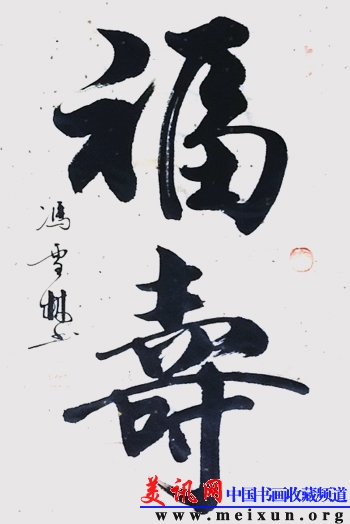 福
壽
馮雪林书
美讯网 中国书画收藏频道
www.meixun.org